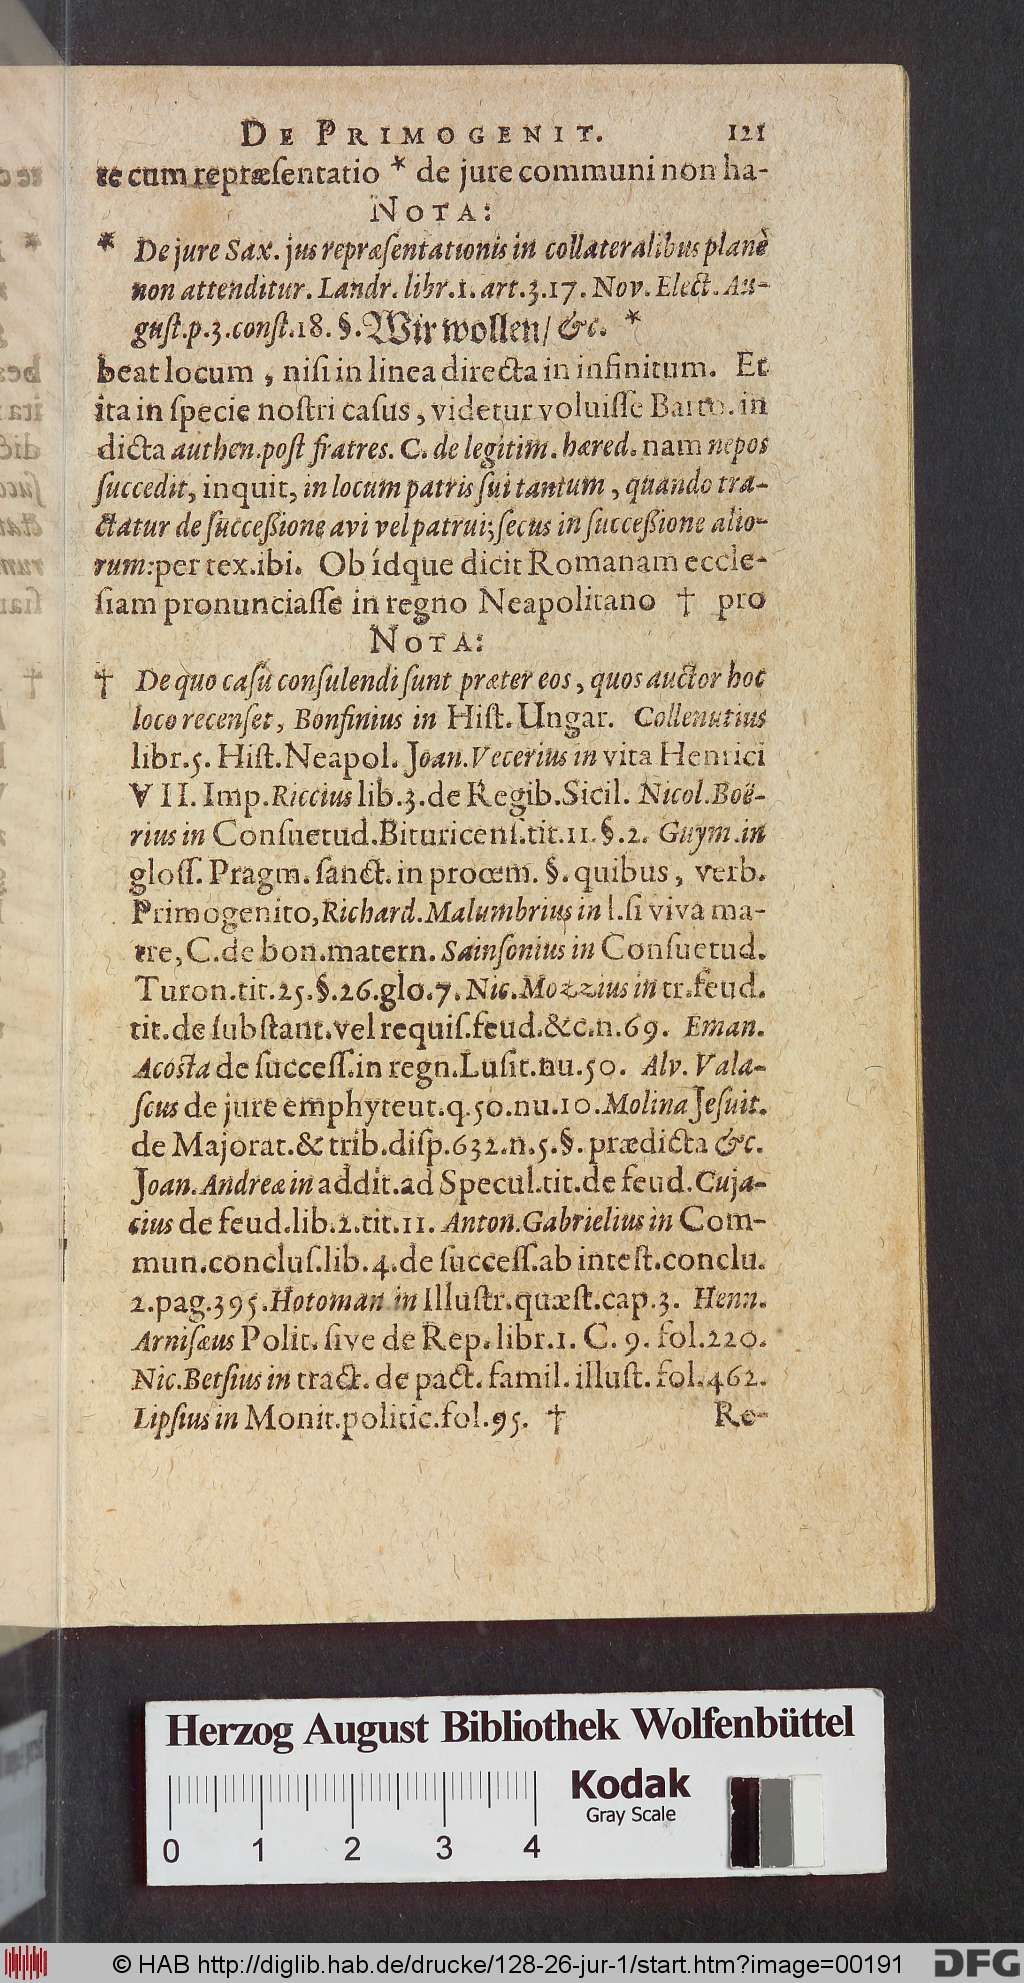 DE PRIMOGENIT. 121
re cum repræſentatio * de jure communi non ha-
NOTA:
* De jure Sax. jus repræſentationis in collateralibus planè
non attenditur. Landr. libr. 1. art. 3. 17. Nov. Elect. Au-
guſt. p. 3. conſt. 18. §. Wir wollen/ &c. *
beat locum, niſi in linea directa in infinitum. Et
ita in ſpecie noſtri caſus, videtur voluiſſe Barto. in
dicta authen. poſt fratres. C. de legitim. hæred. nam nepos
ſuccedit, inquit, in locum patris ſui tantum, quando tra-
ctatur de ſucceßione avi vel patrui; ſecus in ſucceßione alio-
rum: per tex. ibi. Ob ídque dicit Romanam eccle-
ſiam pronunciaſſe in regno Neapolitano † pro
NOTA:
† De quo caſu conſulendi ſunt præter eos, quos auctor hoc
loco recenſet, Bonfinius in Hiſt. Ungar. Collenutius
libr. 5. Hiſt. Neapol. Joan. Vecerius in vita Henrici
VII. Imp. Riccius lib. 3. de Regib. Sicil. Nicol. Boë-
rius in Conſuetud. Bituricenſ. tit. 11. §. 2. Guym. in
gloſſ. Pragm. ſanct. in procœm. §. quibus, verb.
Primogenito, Richard. Malumbrius in l. ſi viva ma-
tre, C. de bon. matern. Sainſonius in Conſuetud.
Turon. tit. 25. §. 26. glo. 7. Nic. Mozzius in tr. feud.
tit. de ſubſtant. vel requiſ. feud. &c. n. 69. Eman.
Acoſta de ſucceſſ. in regn. Luſit. nu. 50. Alv. Vala-
ſcus de jure emphyteut. q. 50. nu. 10. Molina Jeſuit.
de Majorat. & trib. diſp. 632. n. 5. §. prædicta &c.
Joan. Andreæ in addit. ad Specul. tit. de feud. Cuja-
cius de feud. lib. 2. tit. 11. Anton. Gabrielius in Com-
mun. concluſ. lib. 4. de ſucceſſ. ab inteſt. conclu.
2. pag. 395. Hotoman in Illuſtr. quæſt. cap. 3. Henn.
Arniſæus Polit. ſive de Rep. libr. 1. C. 9. fol. 220.
Nic. Betſius in tract. de pact. famil. illuſt. fol. 462.
Lipſius in Monit. politic. fol. 95. † Re-
Herzog August Bibliothek Wolfenbüttel
Kodak
Gray Scale
0 1 2 3 4
© HAB http://diglib.hab.de/drucke/128-26-jur-1/start.htm?image=00191 DFG